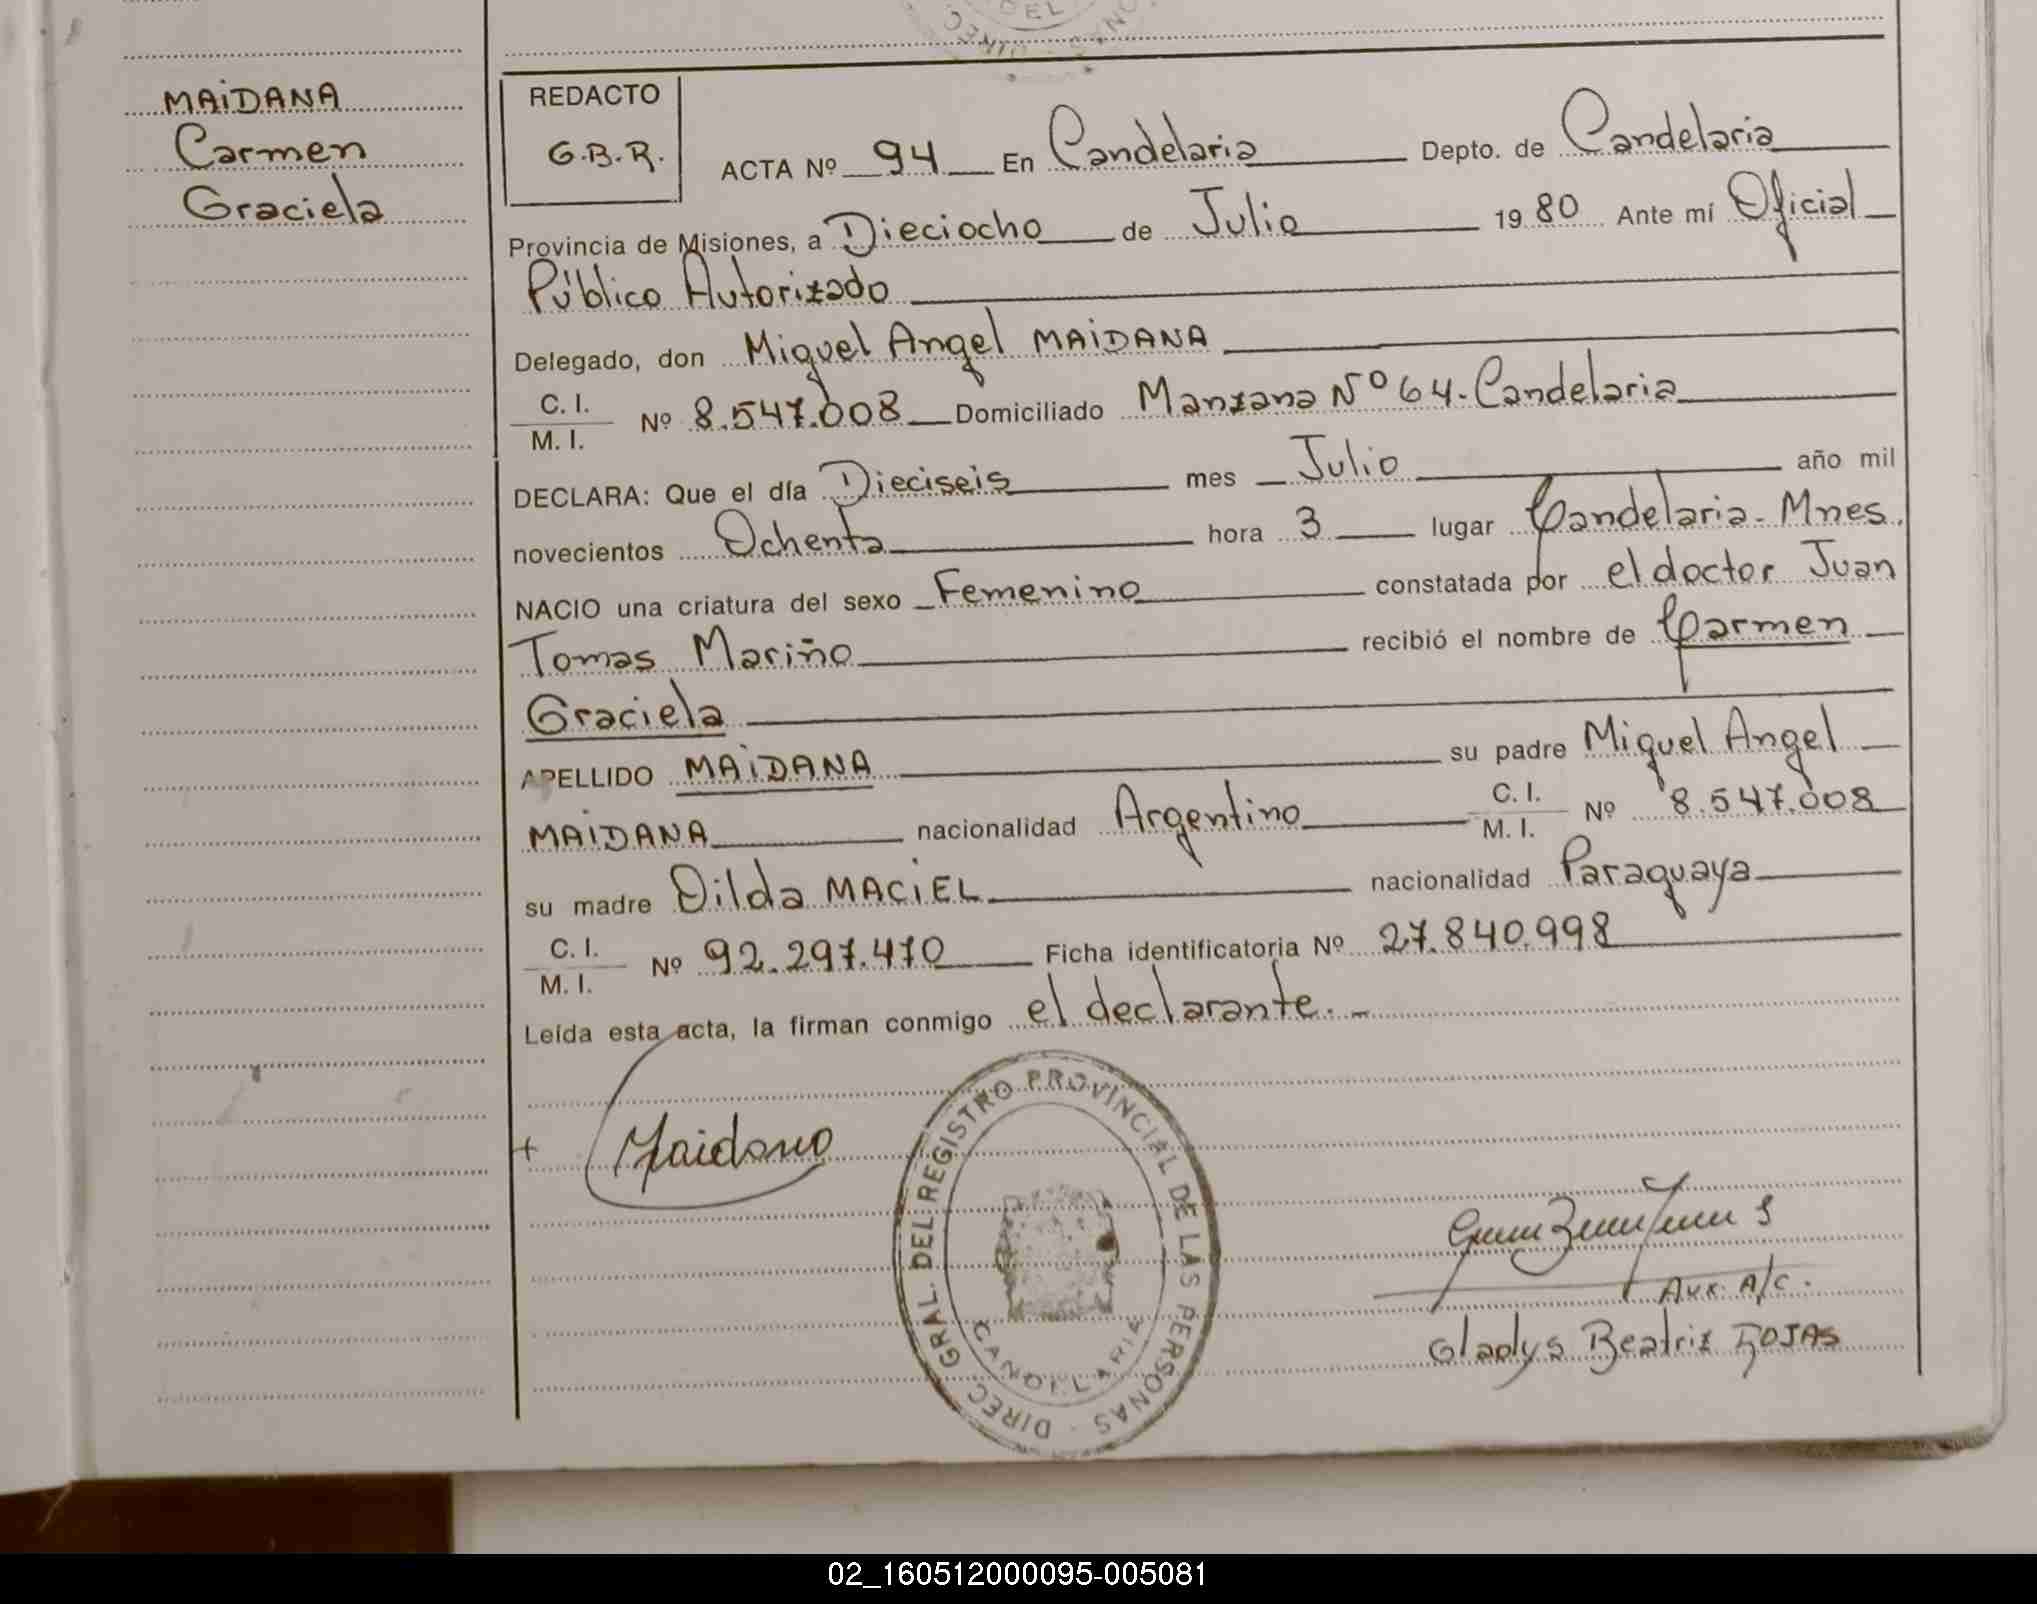 MAIDANA
Carmen
Graciela
REDACTO
G.B.R.
ACTA Nº 94 En Candelaria Depto. de Candelaria
Provincia de Misiones, a Dieciocho de Julio 1980 Ante mí Oficial
Público Autorizado
Delegado, don Miguel Angel MAIDANA
C. I.
M. I. Nº 8.547.008 Domiciliado Manzana Nº 64. Candelaria
DECLARA: Que el día Dieciseis mes Julio año mil
novecientos Ochenta hora 3 lugar Candelaria - Mnes.
NACIO una criatura del sexo Femenino constatada por el doctor Juan
Tomas Mariño recibió el nombre de Carmen
Graciela
APELLIDO MAIDANA su padre Miguel Angel
MAIDANA nacionalidad Argentino C. I. M. I. Nº 8.547.008
su madre Oilda MACIEL nacionalidad Paraguaya
C. I.
M. I. Nº 92.297.470 Ficha identificatoria Nº 27.840.998
Leída esta acta, la firman conmigo el declarante. -
+ Maidana
DIREC. GRAL. DEL REGISTRO PROVINCIAL DE LAS PERSONAS
CANDELARIA
Aux. A/C.
Gladys Beatriz ROJAS
02_160512000095-005081